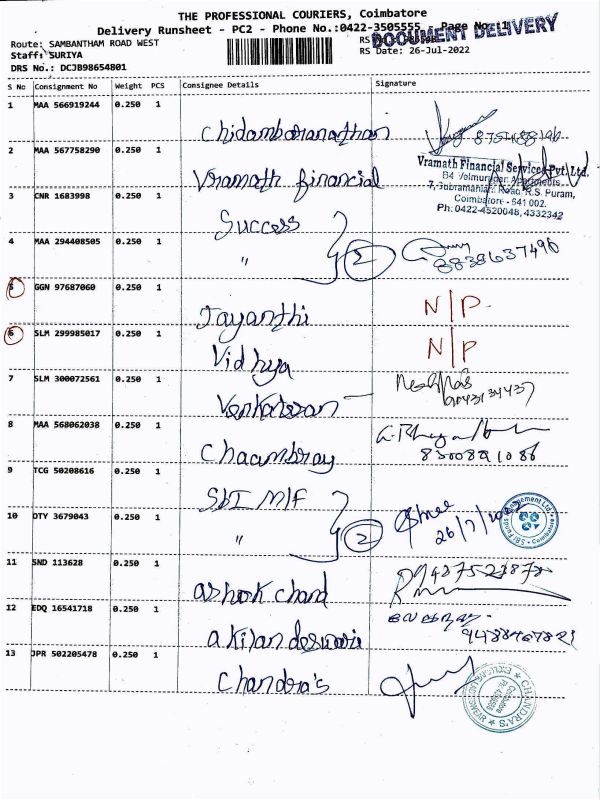 THE PROFESSIONAL COURIERS, Coimbatore
Delivery Runsheet - PC2 - Phone No.:0422-3505555 - Page No:1
DOCUMENT DELIVERY
Route: SAMBANTHAM ROAD WEST
Staff: SURIYA
RS Date: 26-Jul-2022
DRS No.: DCJB98654801
S No Consignment No Weight PCS Consignee Details Signature
1 MAA 566919244 0.250 1
Chidambaranathan
2 MAA 567758290 0.250 1
Vramath Financial Services Pvt. Ltd.
B4 Velmurugan Apartments
7, Subramaniam Road, R.S. Puram,
Coimbatore - 641 002.
Ph: 0422-4520048, 4332342
Vramath financial
3 CNR 1683998 0.250 1
Success
4 MAA 294408505 0.250 1
" 2 8838637496
5 GGN 97687060 0.250 1
Jayanthi N/P
6 SLM 299985017 0.250 1
Vidhya N/P
7 SLM 300072561 0.250 1
Venkatesan
8 MAA 568062038 0.250 1
Chaambray 8300891086
9 TCG 50208616 0.250 1
SbI M/F
10 DTY 3679043 0.250 1
" 2 26/7/2022
11 SND 113628 0.250 1
ashok chand
12 EDQ 16541718 0.250 1
akilandeswari
13 JPR 502205478 0.250 1
Chandra's
CHANDRA'S